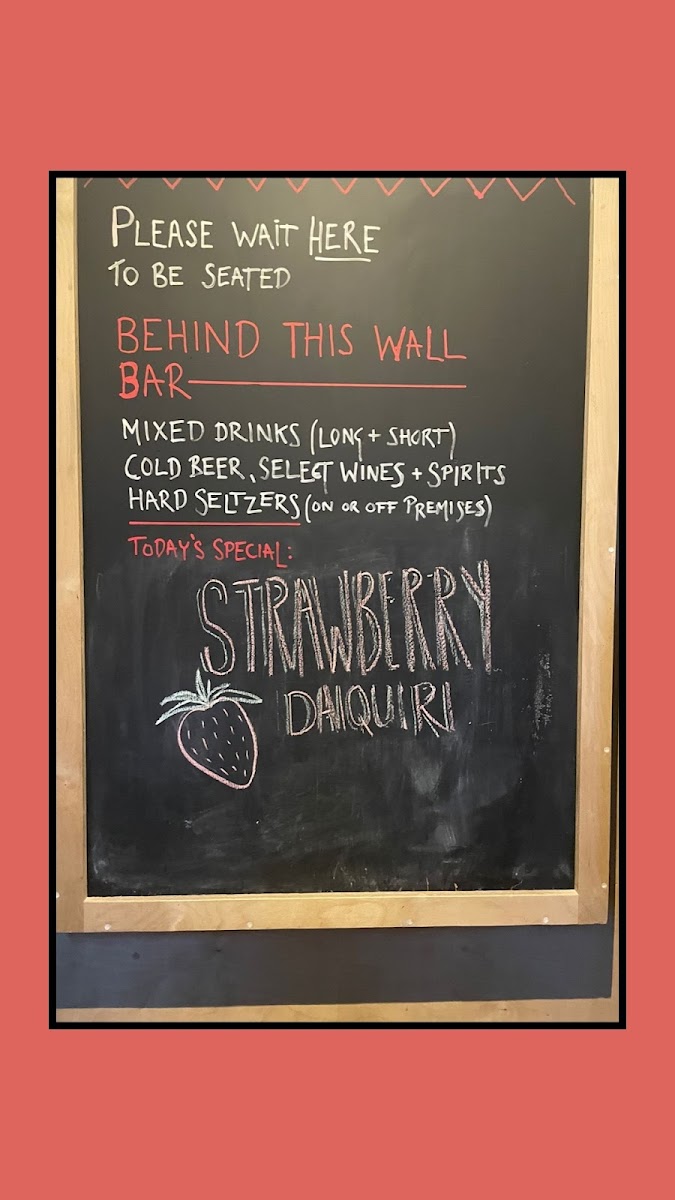 PLEASE WAIT HERE
TO BE SEATED
BEHIND THIS WALL
BAR
MIXED DRINKS (LONG + SHORT)
COLD BEER, SELECT WINES + SPIRITS
HARD SELTZERS (ON OR OFF PREMISES)
TODAY'S SPECIAL:
STRAWBERRY
DAIQUIRI